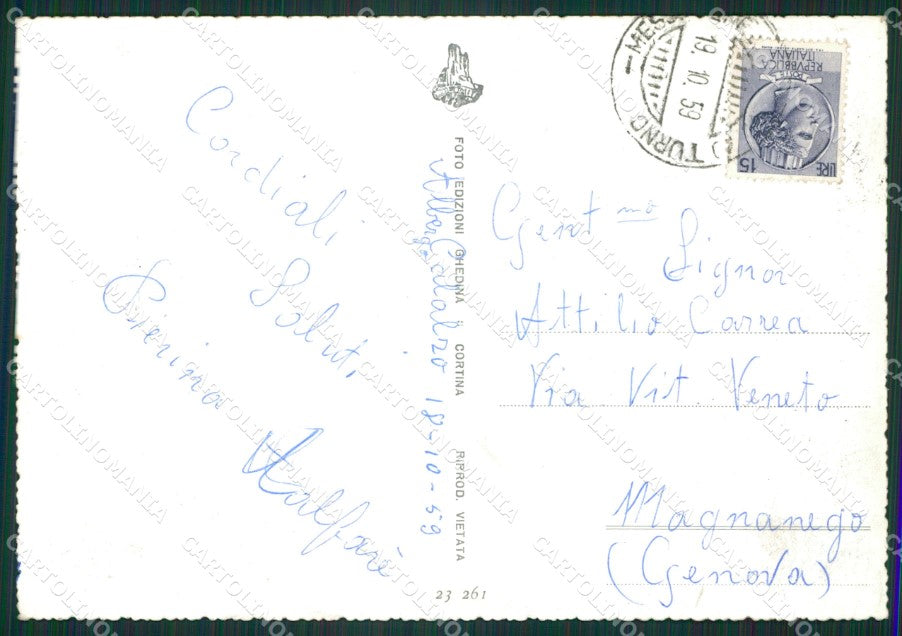 Cordiali
Saluti
Pierina
FOTO EDIZIONI GHEDINA - CORTINA RIPROD. VIETATA
Calalzo 18-10-59
23 261
19.10.59
TURNO
REPVBBLICA
ITALIANA
POSTE
LIRE 15
Gent mo
Signor
Attilio Carrea
Via Vit. Veneto
Magnanego
(Genova)
CARTOLINOMANIA